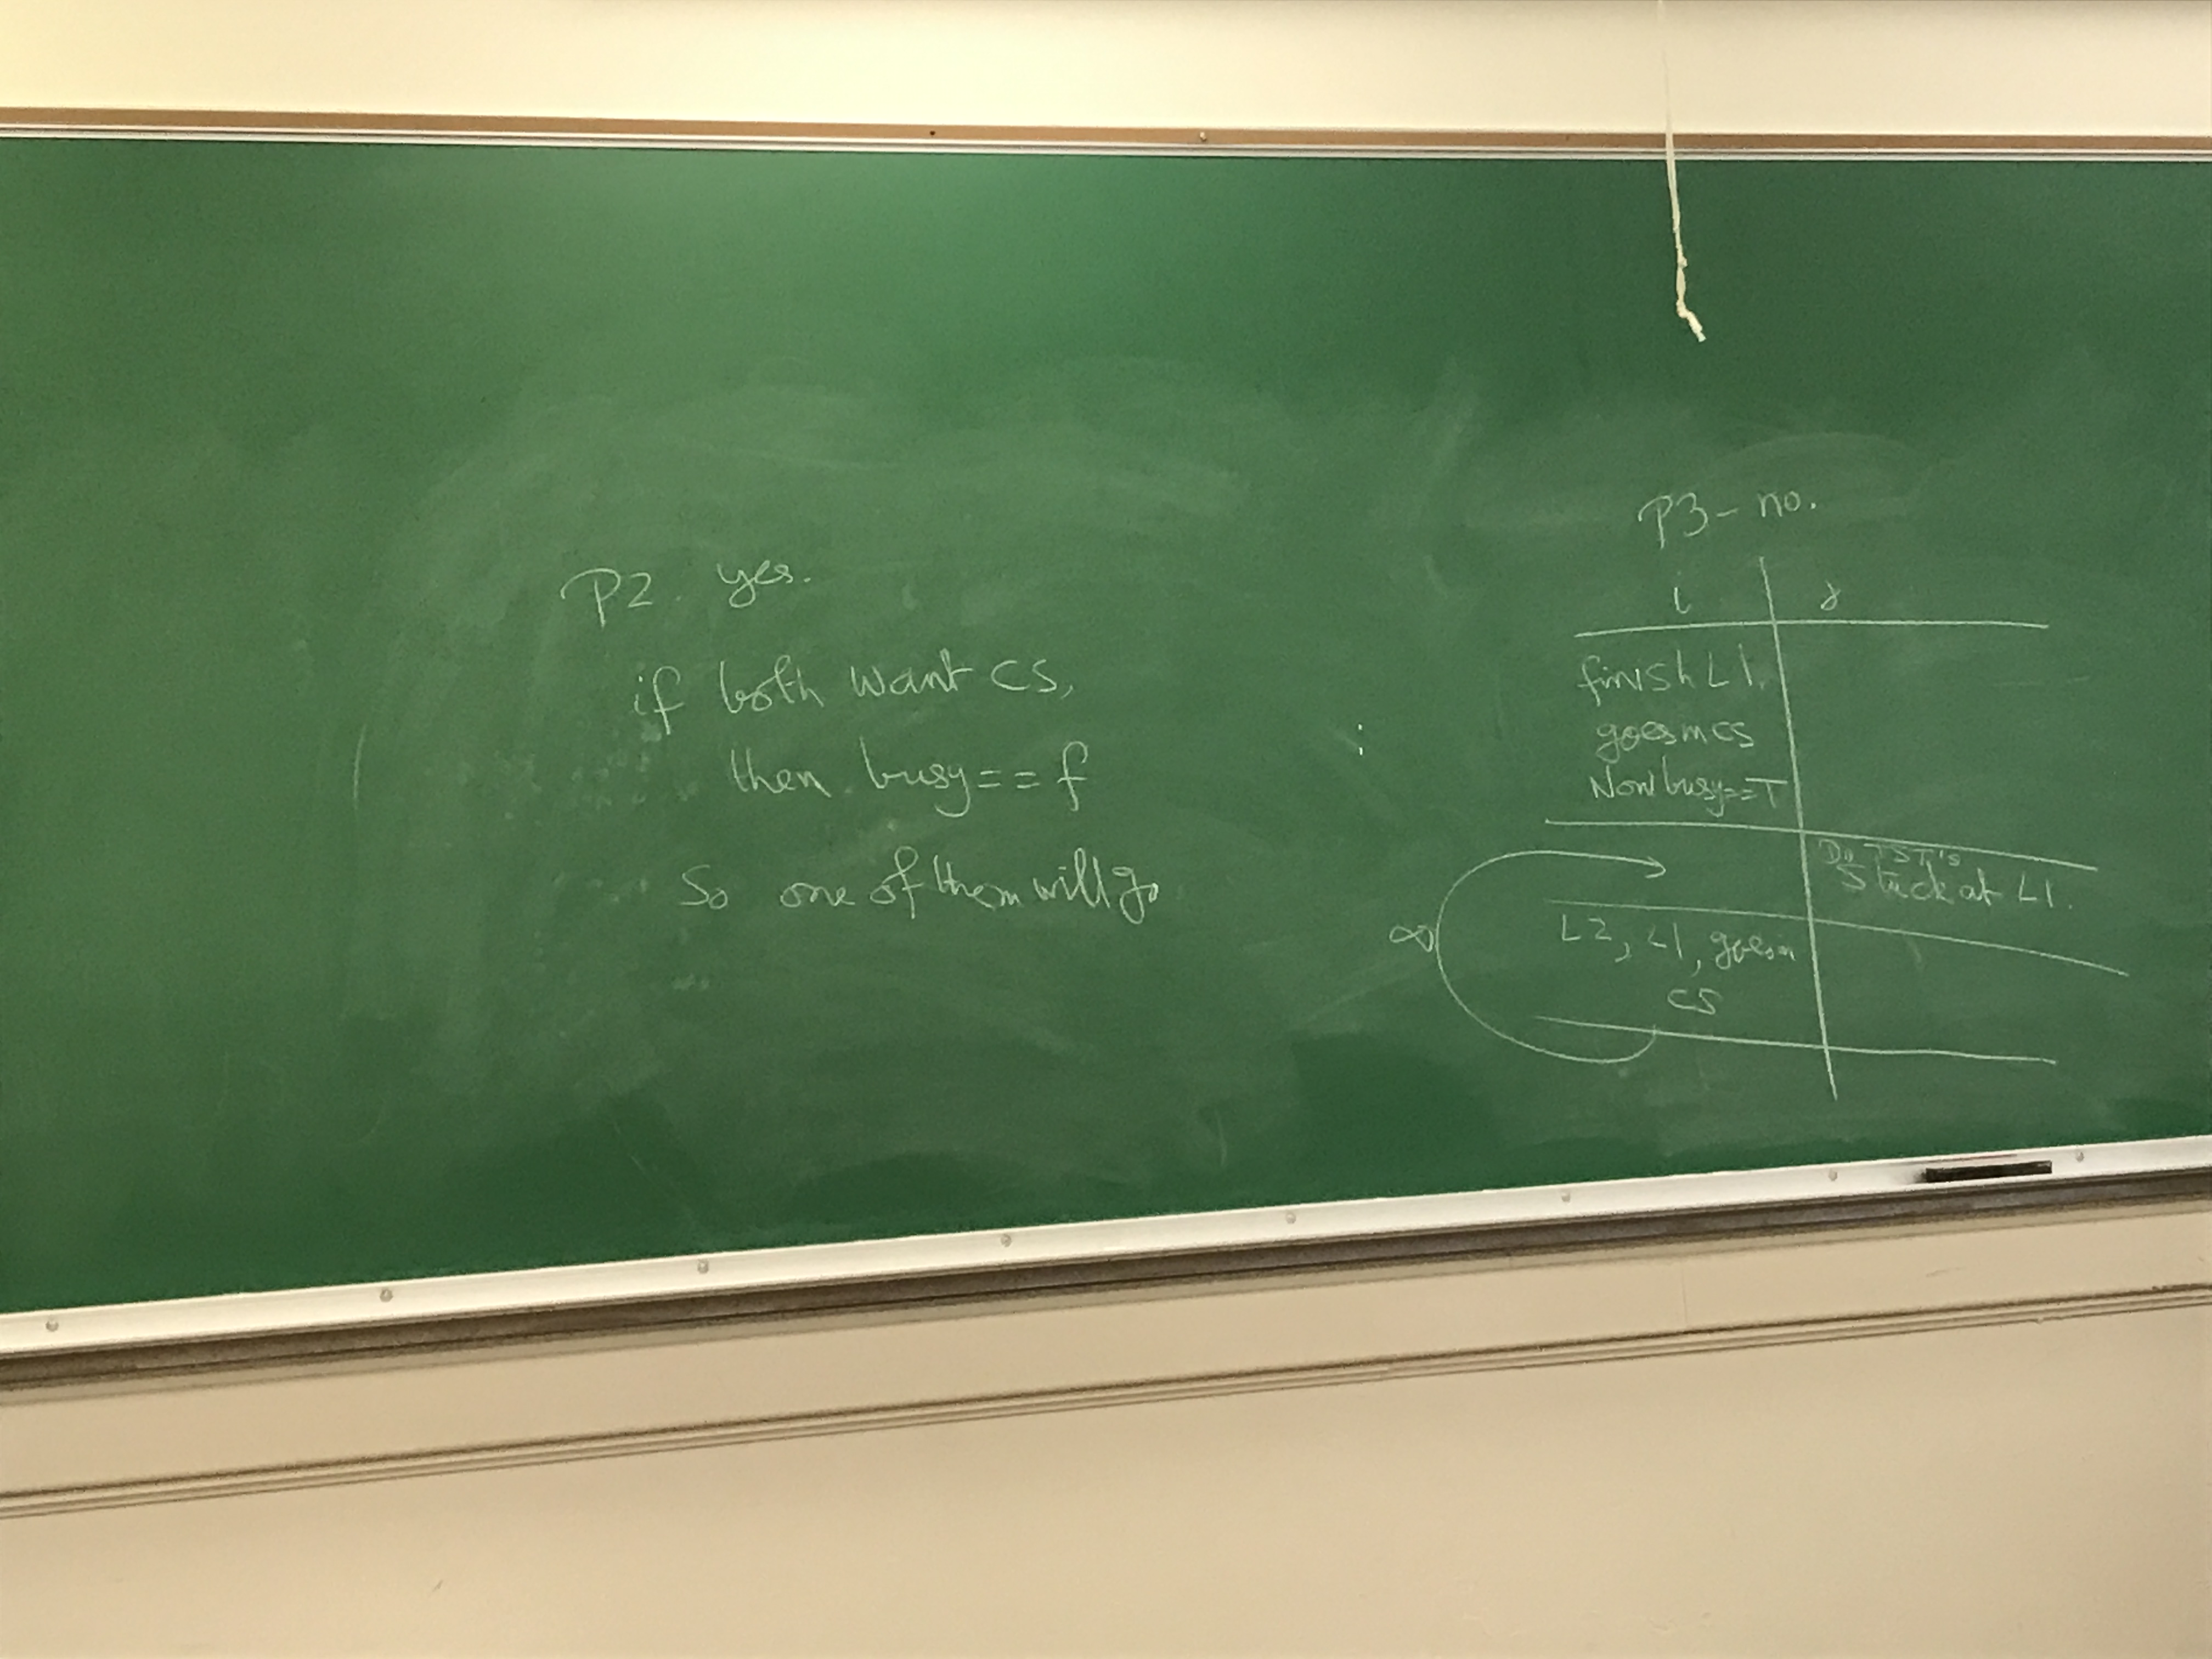 P2. yes.
if both want CS,
then busy==f
So one of them will go
P3 - no.
i j
finish L1.
goes in CS
Now busy==T
Do TST's
Stuck at L1.
∞
L2, L1, goes in
CS